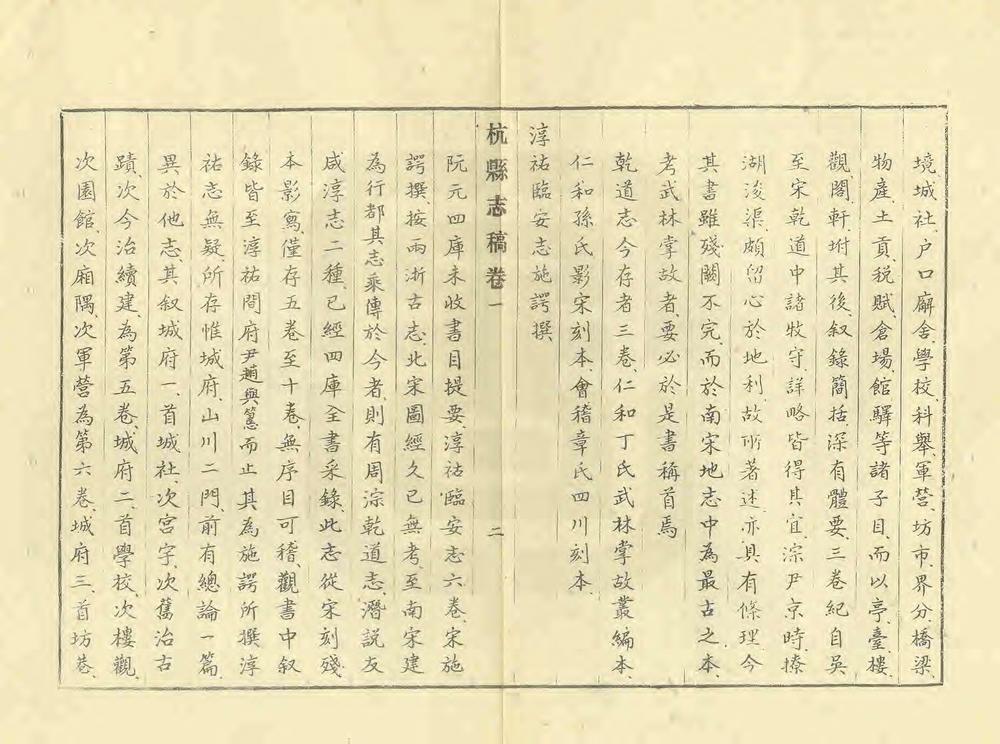 境、城社、户口廨舍、學校、科舉、軍營、坊市、界分、橋梁、
物產、土貢、稅賦、倉場、館驛等諸子目、而以亭、臺、樓、
觀、閣、軒、坿其後、叙錄簡括、深有體要、三卷紀自吳
至宋乾道中諸牧守、詳略皆得其宜、淙尹京時、撩
湖浚渠、頗留心於地利、故所著述、亦具有條理、今
其書雖殘闕不完、而於南宋地志中為最古之本、
考武林掌故者、要必於是書稱首焉
乾道志今存者三卷、仁和丁氏武林掌故叢編本、
仁和孫氏影宋刻本、會稽章氏四川刻本、
淳祐臨安志施諤撰
杭縣志稿卷一
二
阮元四庫未收書目提要、淳祐臨安志六卷、宋施
諤撰、按兩浙古志、北宋圖經久已無考、至南宋建
為行都、其志乘傳於今者、則有周淙乾道志、潛說友
咸淳志二種、已經四庫全書采錄、此志從宋刻殘
本影寫、僅存五卷至十卷、無序目可稽、觀書中叙
錄皆至淳祐間府尹趙與𥲅而止、其為施諤所撰淳
祐志無疑、所存惟城府、山川二門、前有總論一篇、
異於他志、其叙城府一、首城社、次宮宇、次舊治古
蹟、次今治續建、為第五卷、城府二首學校、次樓觀、
次園館、次廂隅、次軍營為第六卷、城府三、首坊巷、